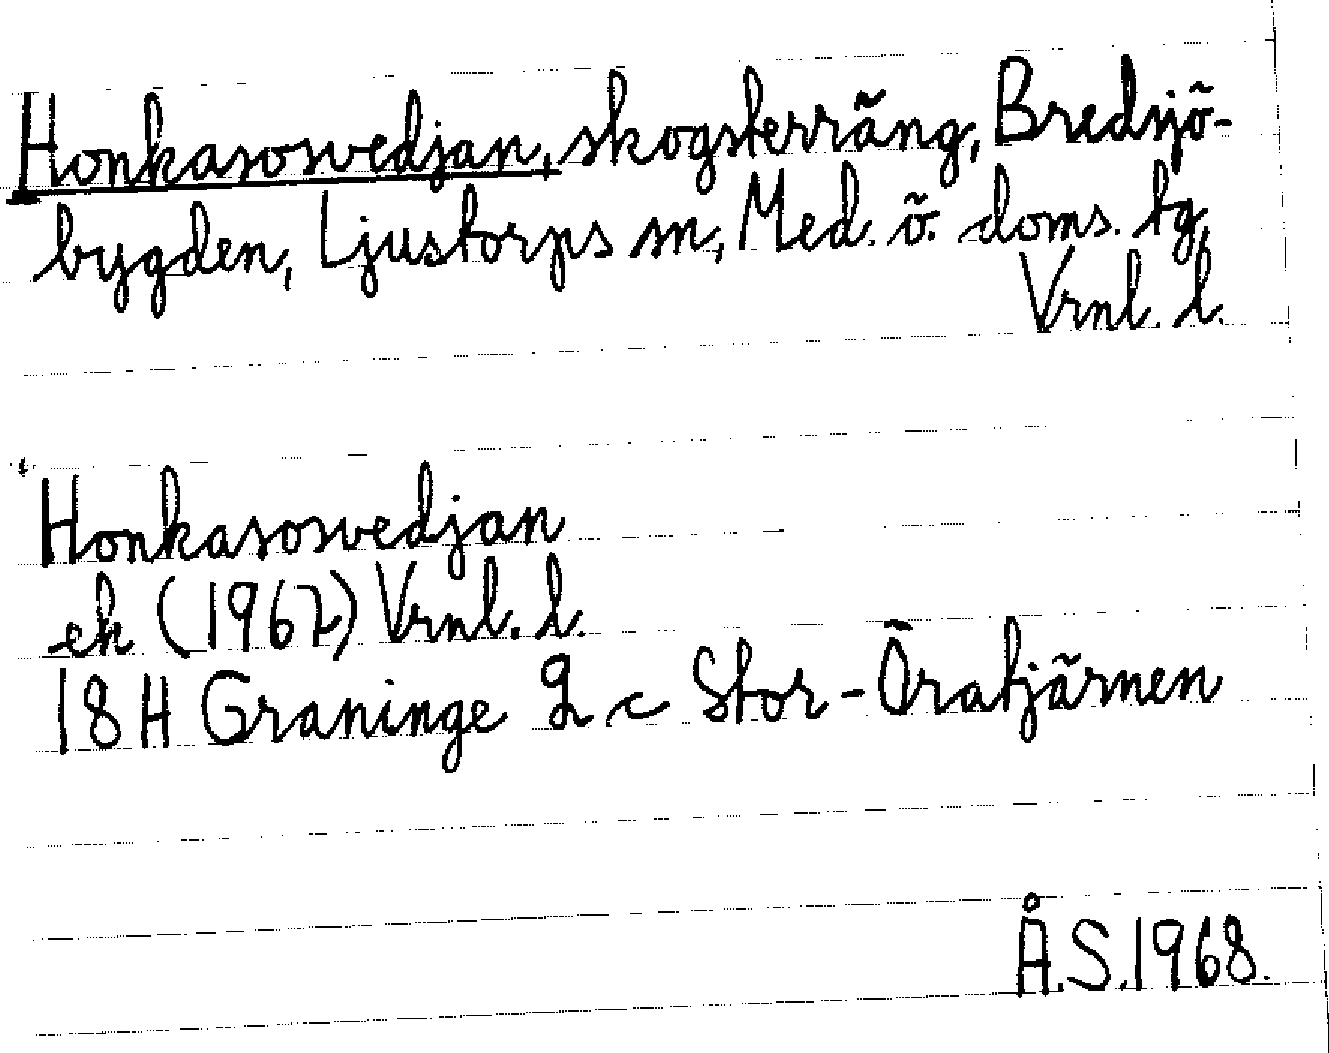 Honkasosvedjan, skogsterräng, Bredsjö-
bygden, Ljustorps sn, Med. ö. doms. tg,
Vrnl. l.
Honkasosvedjan
ek (1967) Vrnl. l.
18H Graninge 2 c Stor-Öratjärnen
Å.S.1968.